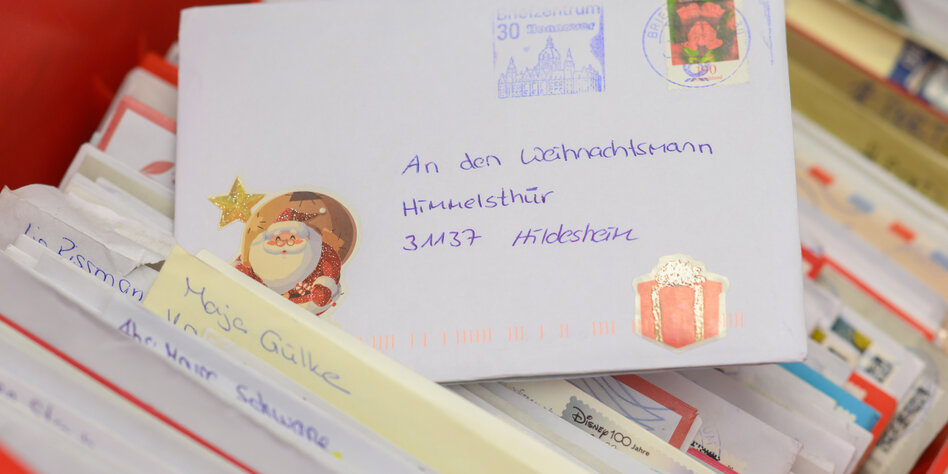 Briefzentrum
30 Hannover
An den Weihnachtsmann
Himmelsthür
31137 Hildesheim
Maja Gülke
Schwane
DISNEY 100 Jahre